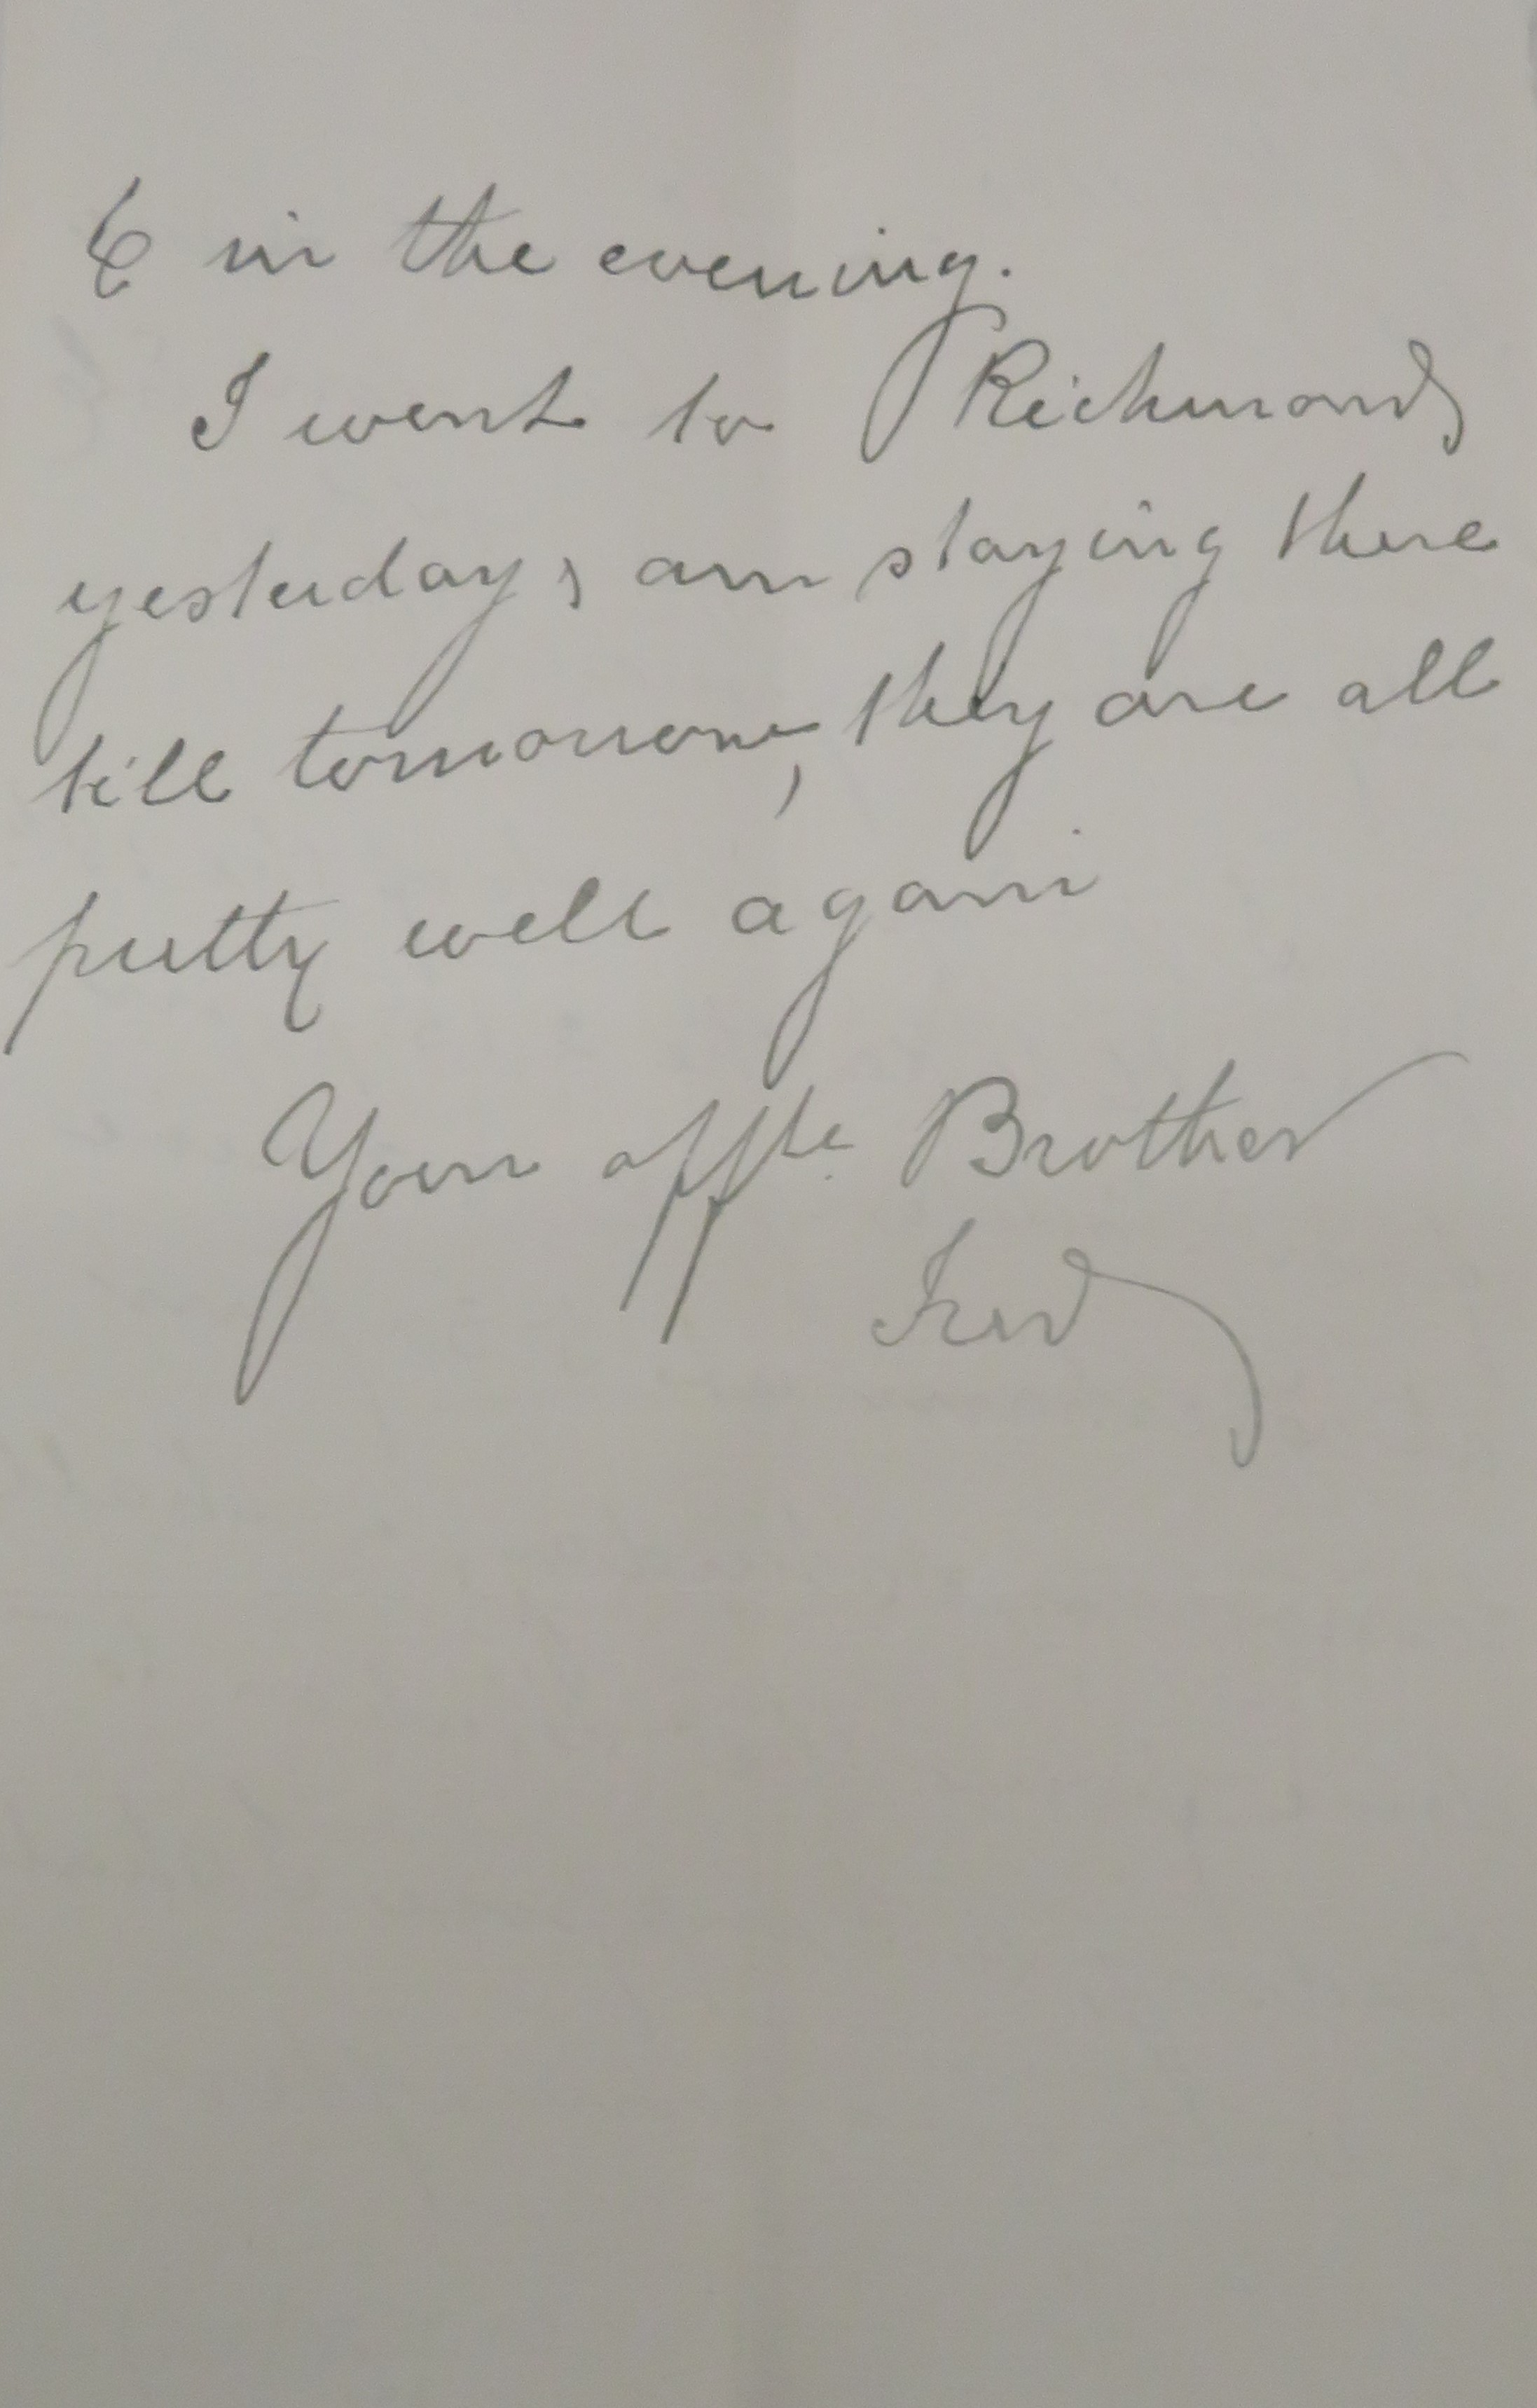 6 in the evening.
I went to Richmond
yesterday, am staying there
till tomorrow, they are all
pretty well again
Your affte. Brother
Fred